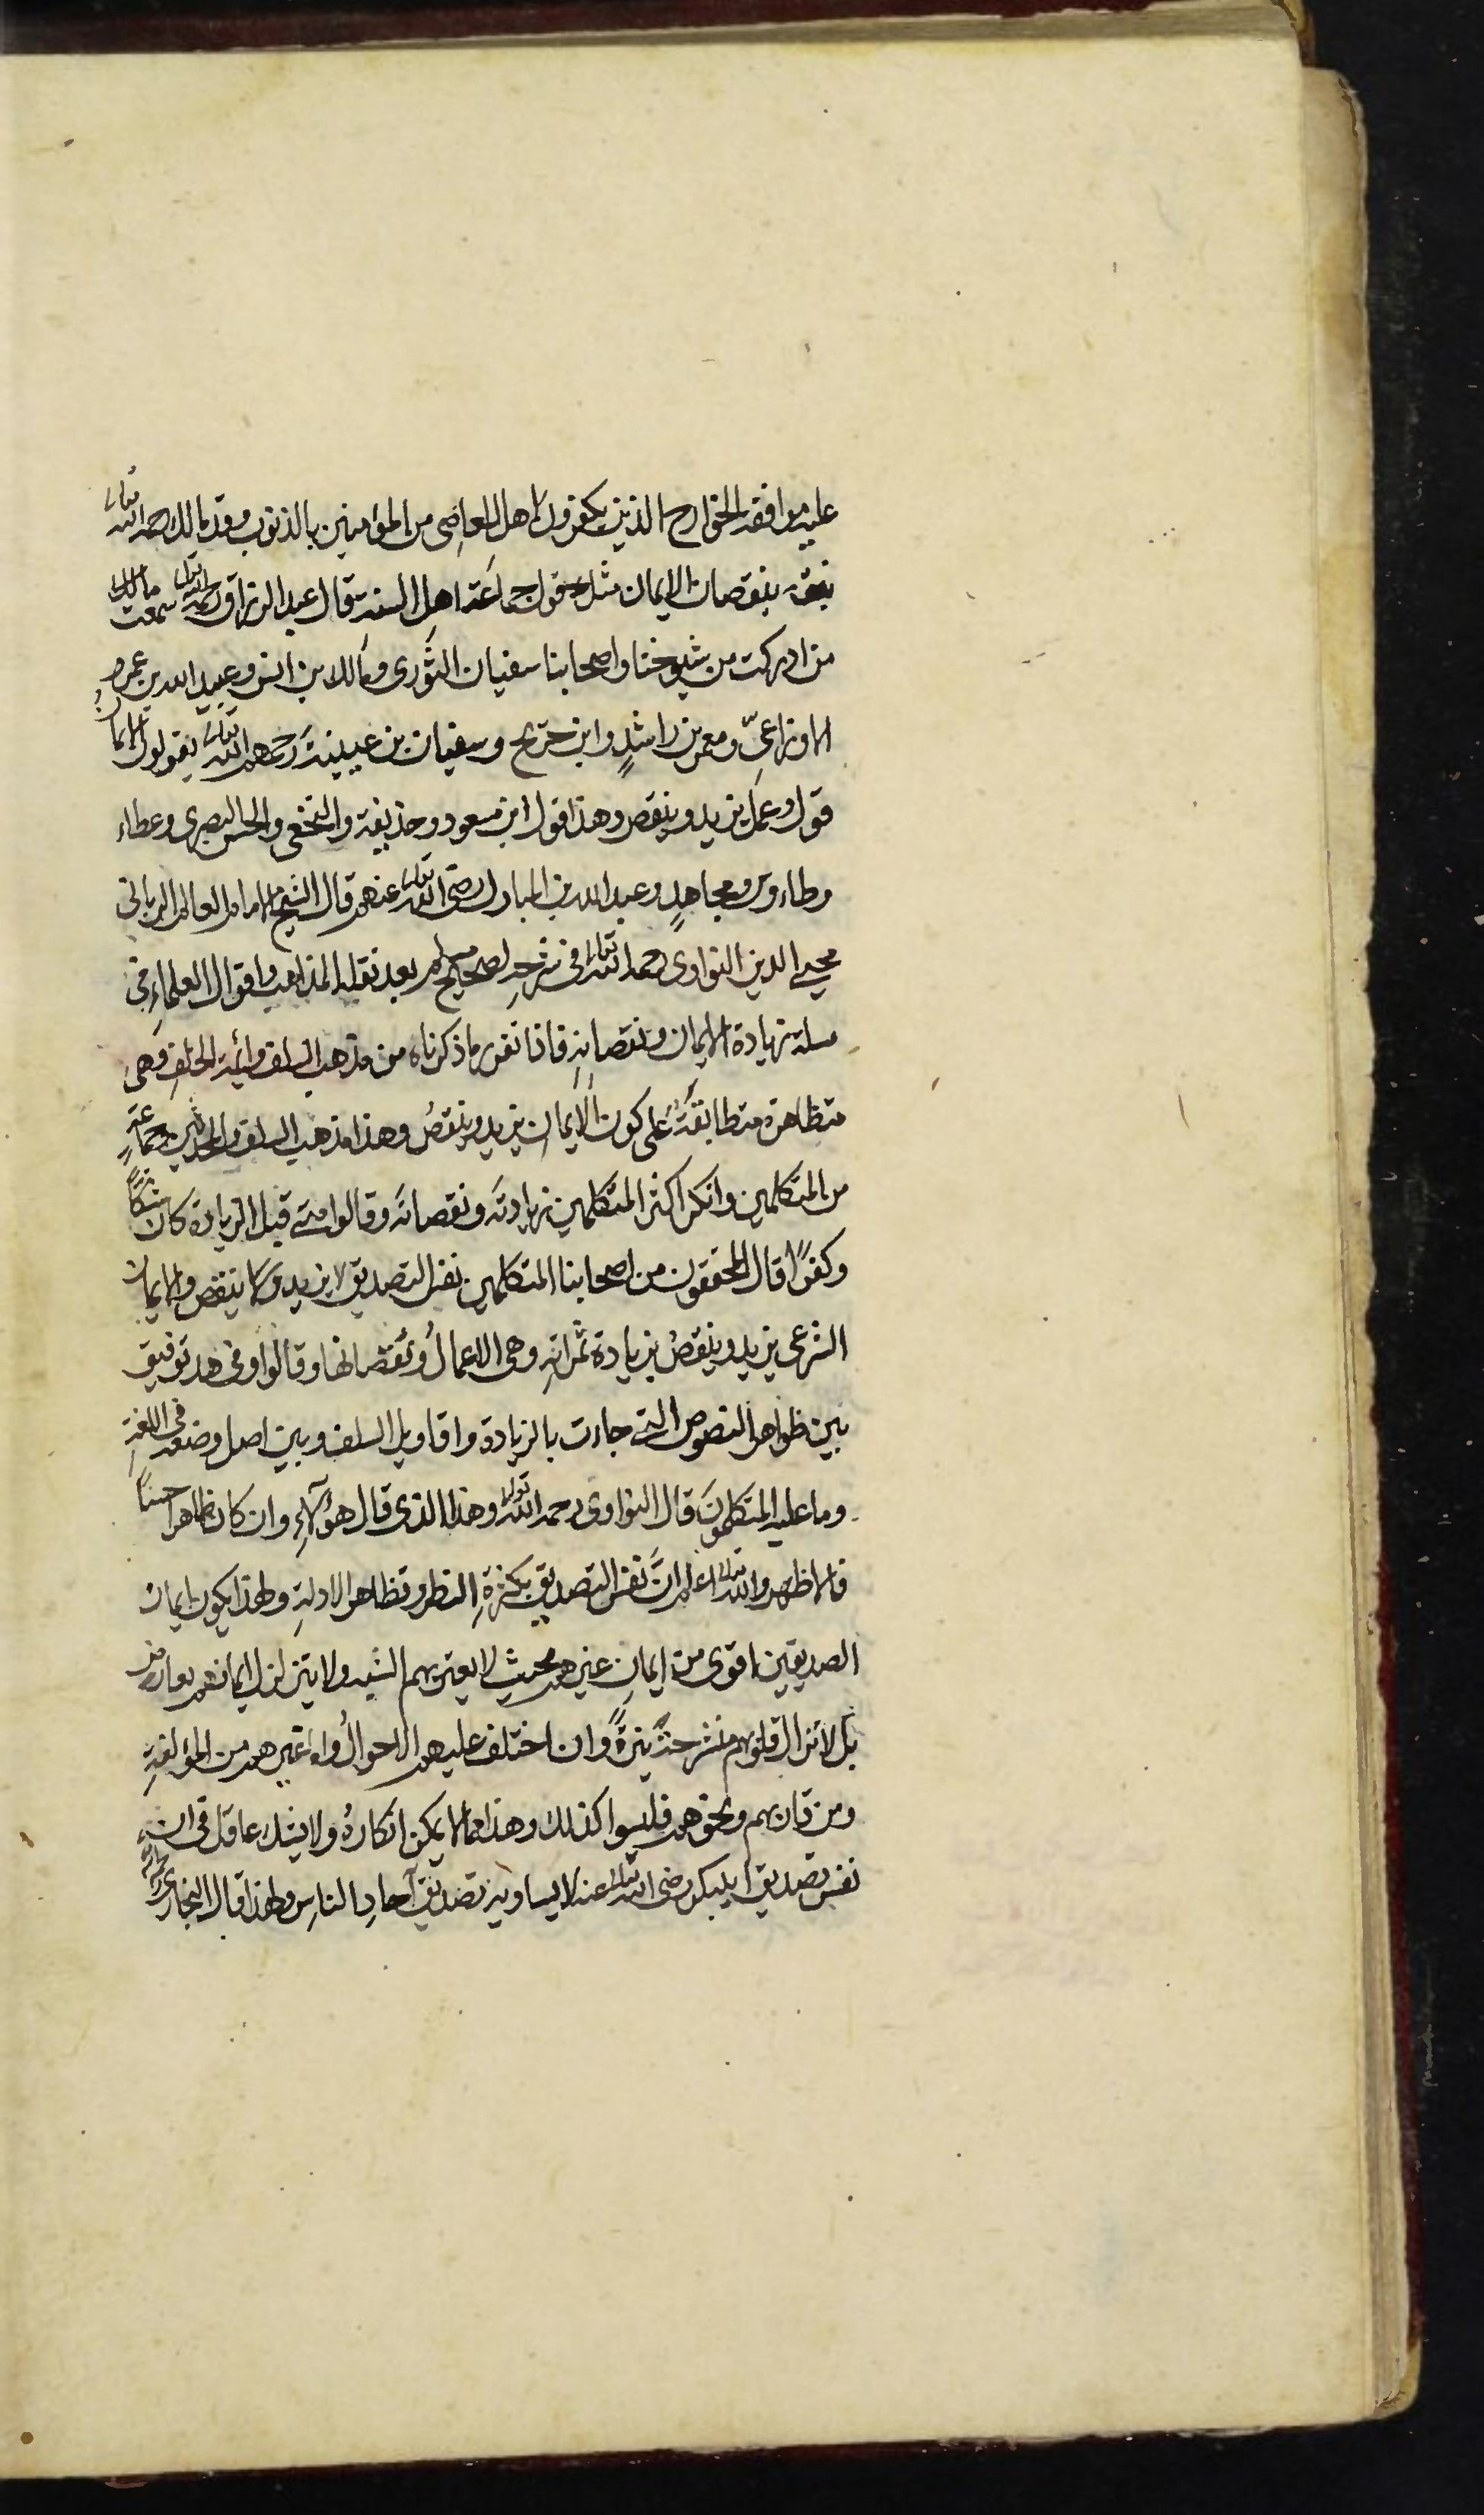 عليه موافقة الخوارج الذين يكفرون اهل المعاصى من المؤمنين بالذنوب وقد مالك رحمه الله تعالى
بنقصان الايمان مثل قول جماعة اهل السنة قال عبد الرزاق رحمه الله تعالى سمعت مالك
من ادركت من شيوخنا واصحابنا سفيان الثورى ومالك بن انس وعبيد الله بن عمر و
الاوزاعىّ ومعمر بن راشدٍ وابن جريح وسفيان بن عيينةَ رحمهم الله تعالى يقولون الايمانُ
قول وعمل يزيد وينقص وهذا قول ابن مسعود وحذيفة والنخعى والحسن البصرى وعطاء
وطاءوس ومجاهدٍ وعبد الله بن المبارك رضى الله تعالى عنهم قال الشيخ الامام العالم الربانى
محيى الدين النواوى رحمه الله تعالى فى شرحه لصحيح مسلم بعد نقله المذاهب واقوال العلماءِ فى
مسلة زيادة الايمان ونقصانهِ فاذا تقرر ما ذكرناه من مذهب السلف وائمة الخلفِ وهى
متظاهرة متطابقةٌ على كون الايمان يزيد وينقصُ وهذا مذهب السلف والمحدثين وجماعةٍ
من المتكلمين وانكر اكثر المتكلمين زيادتَه ونقصانَه وقالوا متى قبل الزيادة كان شكًّا
وكفرًا قال المحققون من اصحابنا المتكلمين نفس التصديق لا يزيد ولا ينقص والايمان
الشرعى يزيد وينقصُ بزيادة ثمراتهِ وهى الاعمالُ ونقصانها وقالوا وفى هذ توفيق
بين ظواهر النصوص التى جاءت بالزيادة واقاويل السلف وبين اصل وضعه فى اللغةِ
وما عليه المتكلمونَ قال النواوى رحمه الله تعالى وهذا الذى قال هؤلآءِ وان كان ظاهرا حسنًا
فالاظهر والله تعالى اعلم انَّ نفس التصديق بكثرةِ النظر وتظاهر الادلةِ ولهذا يكون ايمان
الصديقين اقوى من ايمانِ غيرهم بحيثِ لا يعتريهم الشبه ولا يتزلزل ايمانهم بعارض
بل لا تزال قلوبهم منشرحةً نيرةً وان اختلف عليهم الاحوالُ واما غيرهم من المؤلفةِ
ومن قاربهم ونحوهم فليسوا كذلك وهذا مما لا يمكن انكارهُ ولا يشك عاقل فى ان
نفس تصديق ابى بكر رضى الله تعالى عنه لا يساويه تصديق آحادِ الناسِ ولهذا قال البخارى